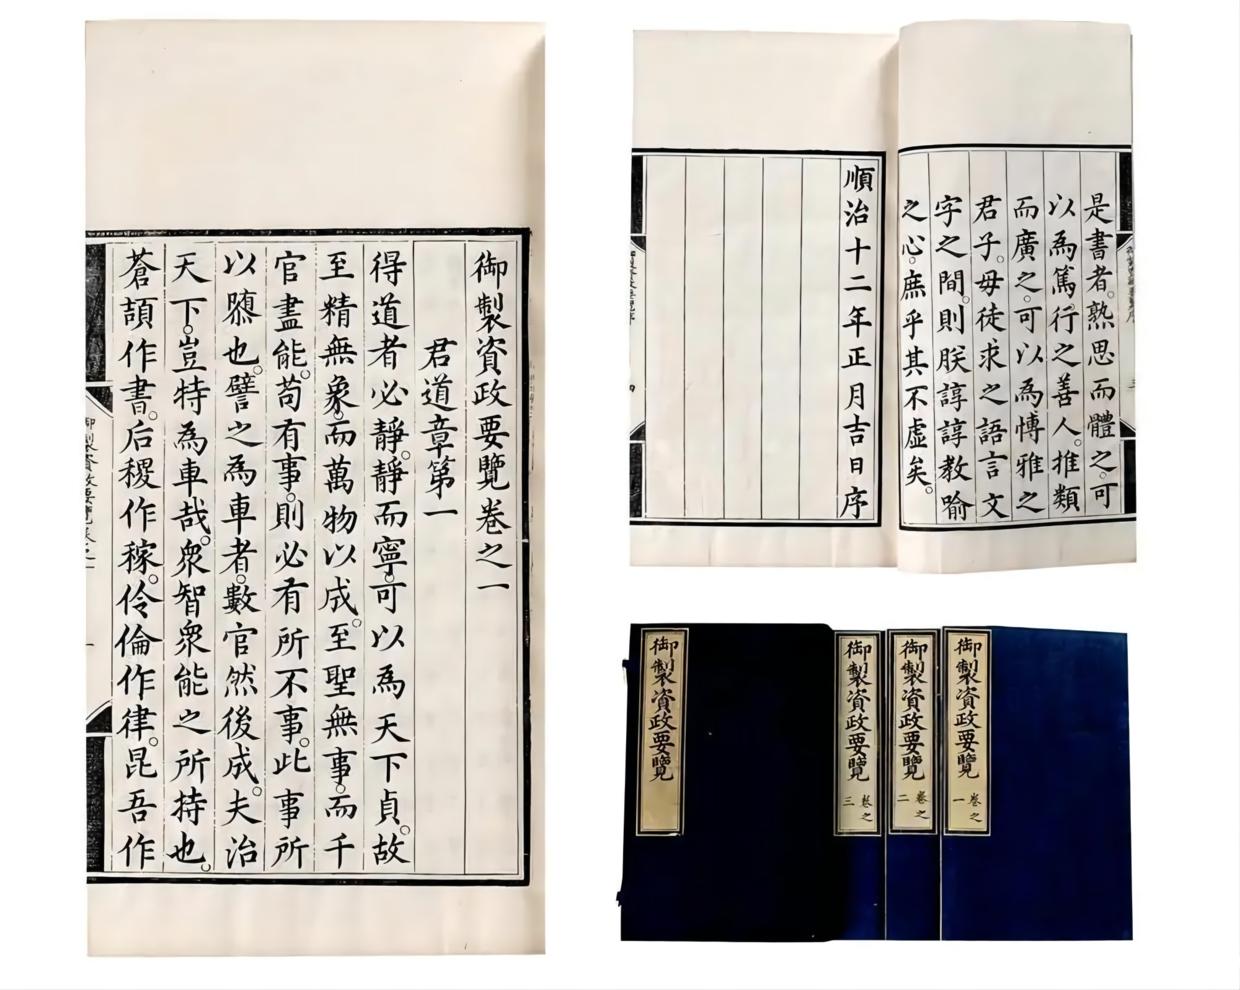 御製資政要覽卷之一
君道章第一
得道者必靜。靜而寧。可以為天下貞。故
至精無象。而萬物以成。至聖無事。而千
官盡能。苟有事。則必有所不事。此事所
以隳也。譬之為車者。數官然後成。夫治
天下。豈特為車哉。眾智眾能之所持也。
蒼頡作書。后稷作稼。伶倫作律。昆吾作
御製資政要覽卷之一
一
是書者。熟思而體之。可
以為篤行之善人。推類
而廣之。可以為博雅之
君子。毋徒求之語言文
字之間。則朕諄諄教喻
之心。庶乎其不虛矣。
順治十二年正月吉日序
御製資政要覽
御製資政要覽 卷之三
御製資政要覽 卷之二
御製資政要覽 卷之一